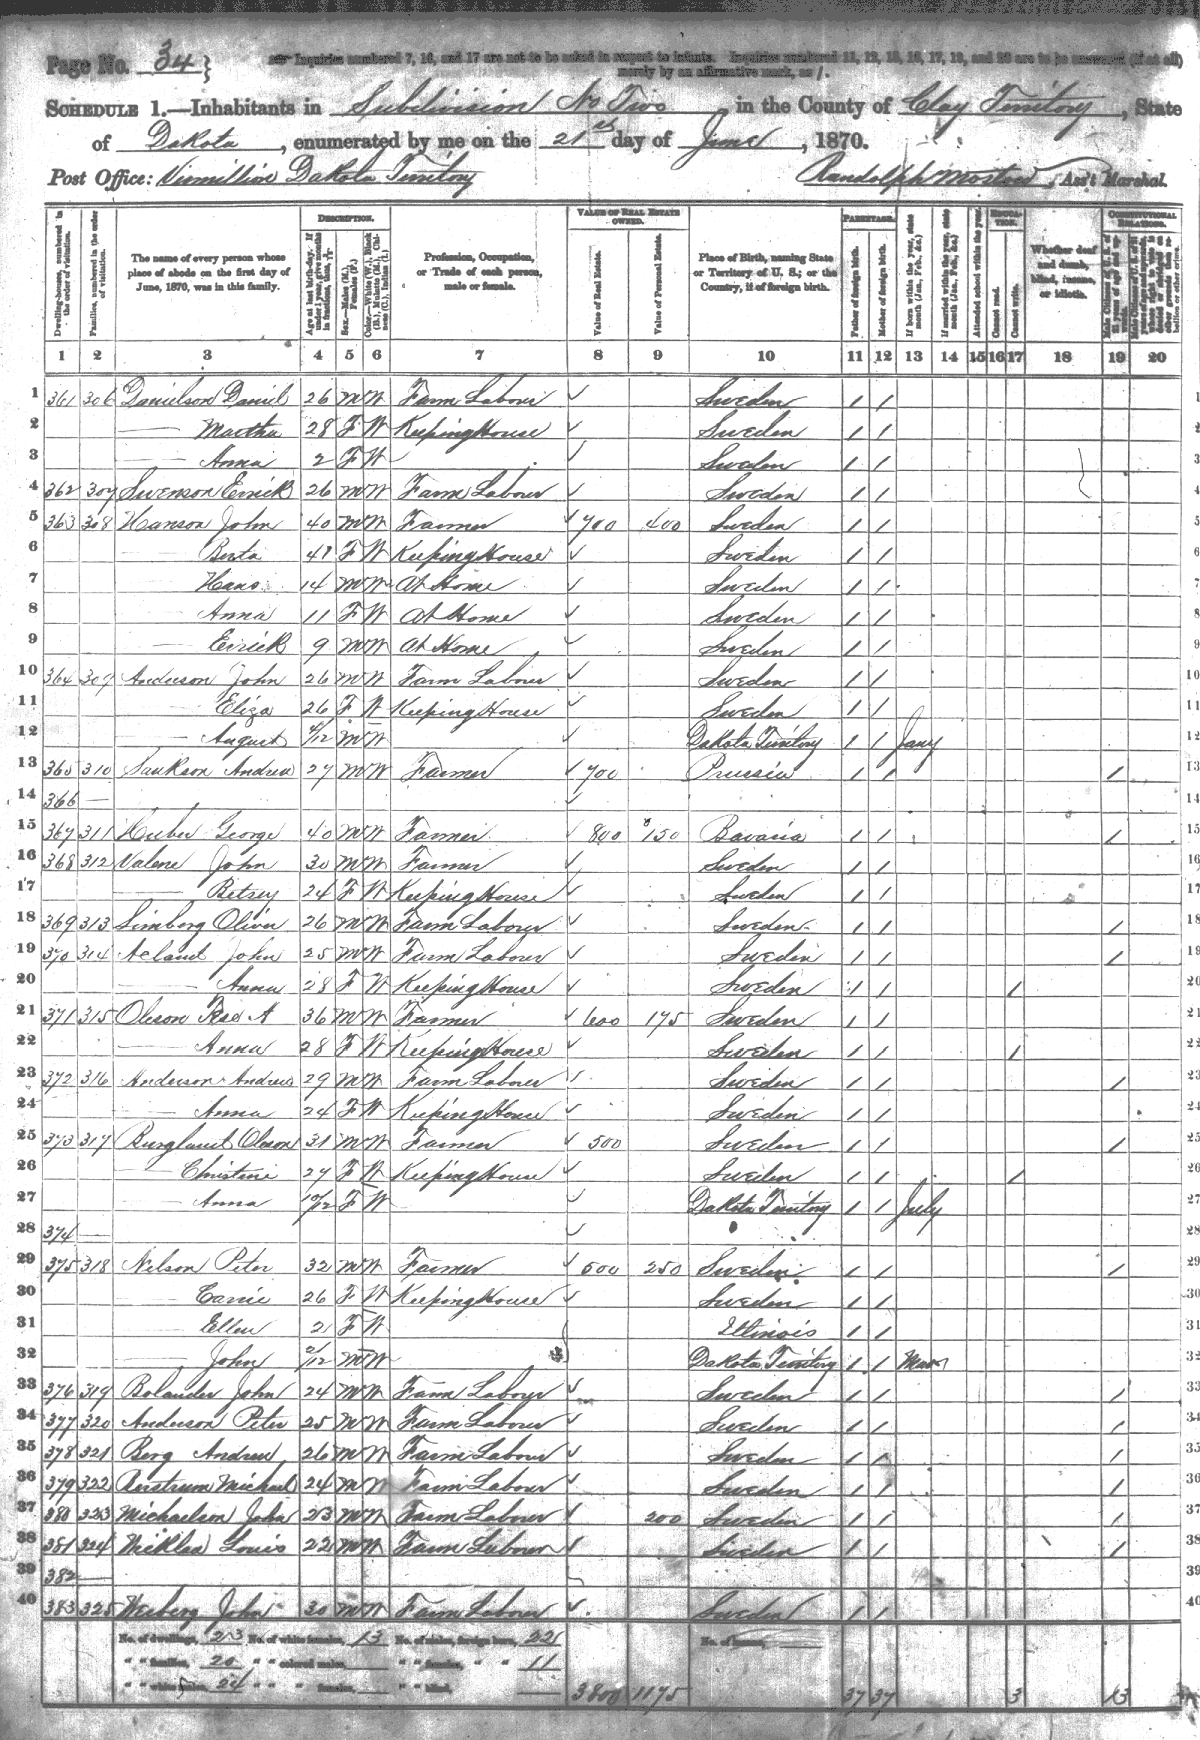 Page No. 34
Inquiries numbered 7, 16, and 17 are not to be asked in respect to infants. Inquiries numbered 11, 12, 15, 16, 17, 19, and 20 are to be answered (if at all) merely by an affirmative mark, as /.
SCHEDULE 1.—Inhabitants in Subdivision No Two, in the County of Clay Territory, State
of Dakota, enumerated by me on the 21st day of June, 1870.
Post Office: Virmillion Dakota Territory Randolph, Ass't Marshal.
Dwelling-houses, numbered in the order of visitation.
Families, numbered in the order of visitation.
The name of every person whose place of abode on the first day of June, 1870, was in this family.
DESCRIPTION.
Age at last birth-day. If under 1 year, give months in fractions, thus, 3/12
Sex.—Males (M.), Females (F.)
Color.—White (W.), Black (B.), Mulatto (M.), Chinese (C.), Indian (I.)
Profession, Occupation, or Trade of each person, male or female.
VALUE OF REAL ESTATE OWNED.
Value of Real Estate.
Value of Personal Estate.
Place of Birth, naming State or Territory of U. S.; or the Country, if of foreign birth.
PARENTAGE.
Father of foreign birth.
Mother of foreign birth.
If born within the year, state month (Jan., Feb., &c.)
If married within the year, state month (Jan., Feb., &c.)
Attended school within the year.
EDUCATION.
Cannot read.
Cannot write.
Whether deaf and dumb, blind, insane, or idiotic.
CONSTITUTIONAL RELATIONS.
1 2 3 4 5 6 7 8 9 10 11 12 13 14 15 16 17 18 19 20
1 361 306 Danielson Daniel 26 M W Farm Labour ✓ Sweden / / 1
2 — Martha 28 F W Keeping House ✓ Sweden / / 2
3 — Anna 2 F W ✓ Sweden / / 3
4 362 307 Swenson Errick 26 M W Farm Labour ✓ Sweden / / 4
5 363 308 Hanson John 40 M W Farmer ✓ 700 400 Sweden / / 5
6 — Berta 47 F W Keeping House ✓ Sweden / / 6
7 — Hans 14 M W At Home ✓ Sweden / / 7
8 — Anna 11 F W At Home ✓ Sweden / / 8
9 — Errick 9 M W At Home ✓ Sweden / / 9
10 364 309 Anderson John 26 M W Farm Labour ✓ Sweden / / 10
11 — Eliza 26 F W Keeping House ✓ Sweden / / 11
12 — August M W ✓ Dakota Territory / / Jany 12
13 365 310 Andrew 27 M W Farmer ✓ 700 Prussia / / / 13
14 366 — ✓ 14
15 367 311 Huber George 40 M W Farmer ✓ 800 150 Bavaria / / / 15
16 368 312 Valene John 30 M W Farmer ✓ Sweden / / 16
17 — Betsey 24 F W Keeping House ✓ Sweden / / 17
18 369 313 Limberg Oliver 26 M W Farm Labour ✓ Sweden / / / 18
19 370 314 Acland John 25 M W Farm Labour ✓ Sweden / / / 19
20 — Anna 28 F W Keeping House ✓ Sweden / / / 20
21 371 315 Oleson A 36 M W Farmer ✓ 600 175 Sweden / / 21
22 — Anna 28 F W Keeping House ✓ Sweden / / / 22
23 372 316 Anderson Andrew 29 M W Farm Labour ✓ Sweden / / / 23
24 — Anna 24 F W Keeping House ✓ Sweden / / 24
25 373 317 Burglund Oleson 31 M W Farmer ✓ 500 Sweden / / / 25
26 — Christine 27 F W Keeping House ✓ Sweden / / / 26
27 — Anna 10/12 F W ✓ Dakota Territory / / July 27
28 374 — ✓ 28
29 375 318 Nelson Peter 32 M W Farmer ✓ 500 250 Sweden / / / 29
30 — Carrie 26 F W Keeping House ✓ Sweden / / 30
31 — Ellen 2 F W Illinois / / 31
32 — John 2/12 M W Dakota Territory / / Mar 32
33 376 319 Bolander John 24 M W Farm Labour ✓ Sweden / / / 33
34 377 320 Anderson Peter 25 M W Farm Labour ✓ Sweden / / / 34
35 378 321 Berg Andrew 26 M W Farm Labour ✓ Sweden / / / 35
36 379 322 Michael 24 M W Farm Labour ✓ Sweden / / / 36
37 380 323 Michaelson John 23 M W Farm Labour 200 Sweden / / / 37
38 381 324 Louis 22 M W Farm Labour Sweden / / / 38
39 382 — 39
40 383 325 John 30 M W Farm Labour ✓ Sweden / / 40
No. of dwellings, 23 No. of white females, 13 No. of males, foreign born, 22 No. of insane,
" " families, 20 " " colored males, " " females, " " 11
" " white males, 24 " " " females, " " blind, 3800 1175 37 37 3 13